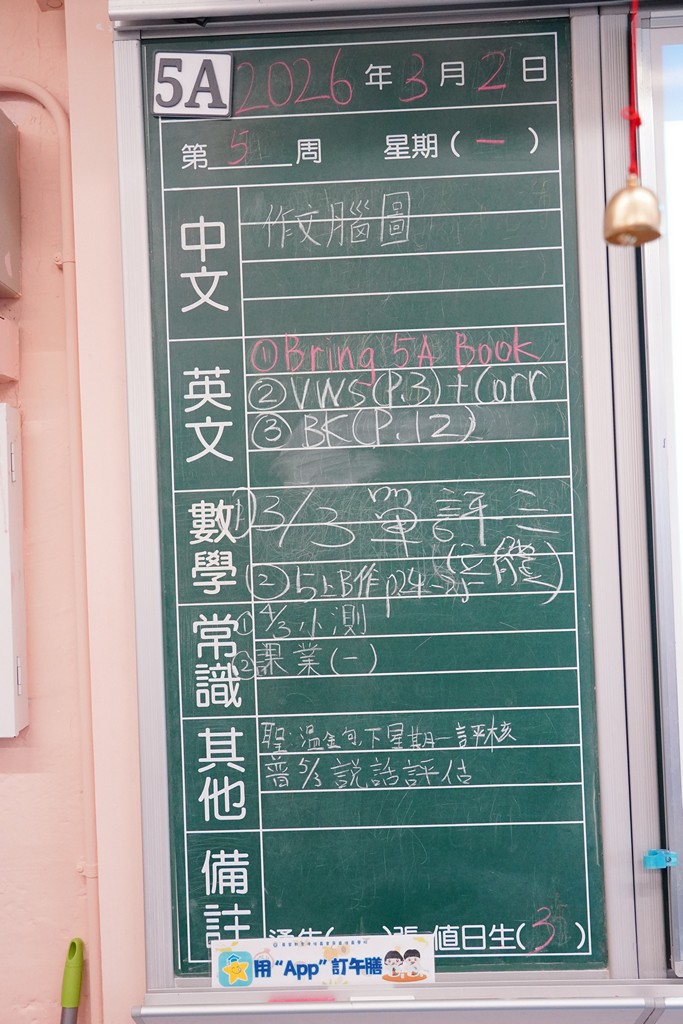 5A 2026年3月2日
第5周 星期(一)
中文
作文腦圖
英文
①Bring 5A Book
②VWS(P.3)+Corr
③BK(P.12)
數學
① 3/3 單評三
②5上B作p24-25(立體)
常識
① 4/3小測
②課業(一)
其他
聖:温金句,下星期一評核
普 5/3 説話評估
備註
通告( )張 值日生(3)
用“App”訂午膳